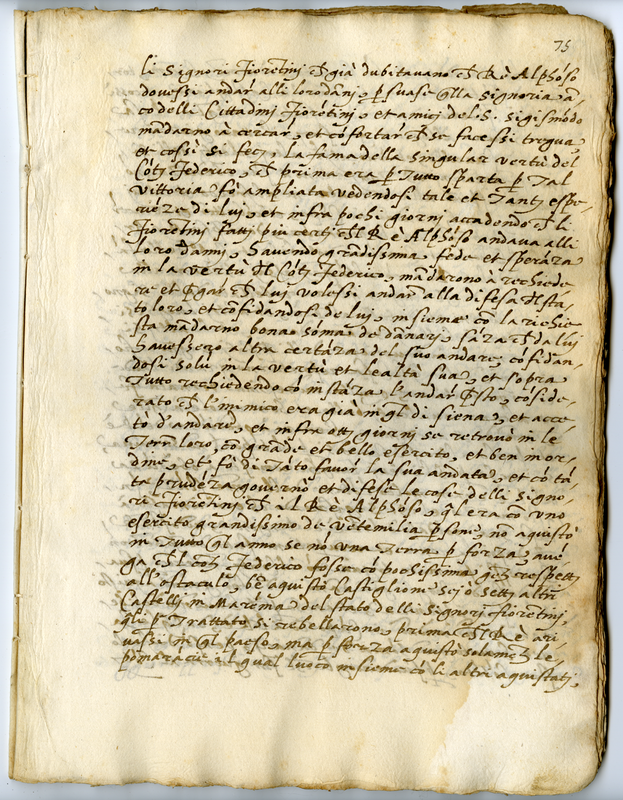 75
li Signori Fiorẽtinj ch̃ già dubitavano ch̃ Rè Alphõso
dovessi andar alli lor dãnj, p̱suase q̃lla Signoria, ã,
co delli Cittadinj Fiorẽtinj, et amicj del .S. sigismõdo
mãdarno à cercar, et cõfortar ch̃ se facessi tregua,
et cossì si fecj, la fama della singular vertù del
Cõtj Federico, ch̃ prima era p̱ Tutto sparta p̱ Tal
vittoria fò ampliata vedendosi tale et Tantj espe,
riẽze di luj, et infra pochi giornj accadendo ch̃ li
Fiorẽtinj fattj più certj ch̃l Rè Alphõso andava alli
loro dãnij, havendo grãdissima fede et sperãza
in la vertù dl Cõtj Federico, mãdarono à rechiede,
re et p̃gar ch̃ luj volessi andar alla difesa dl sta,
to loro, et cõfidandosi de luj, insieme cõ la richie,
sta mãdarno bona sõma de dãnarj, sãza ch̃ da lui
havessero altra certãza del suo andare, cõfidan,
dosi solũ in la vertù et lealtà sua, et sopra
Tutto rechiedendo cõ instãza l'andar p̃sto, cõside,
rato ch̃ l'inimico era già in q̃l di siena, et acce,
tò d'andare, et infra ott̃ giornj se retrovò in le
Terr̃ loro, cõ grãde et bello esercito, et ben in or,
dine, et fò di Tãto favor la sua andata, et cõ tã,
ta prudẽza governò et difese le cose delli Signo,
ri Fiorẽtinj ch̃ al Rè Alphõso, q̃l era cõ uno
esercito grandissimo de vetemilia p̱sone, nõ aquistò
in Tutto q̃l anno se nõ una Terra p̱ forza, avẽ,
ga ch̃l cõtj Federico fosse cõ pochissima gẽtj respettj
all'ostaculo, bẽ aquistò Castiglione sej ò settj altrj
Castellj in Marẽma del stato delli Signorj Fiorẽtinj,
q̃li p̱ Trattato si rebellarono, prima ch̃l Rè ari,
vassi in q̃l paeso, ma p̱ forza aquistò solamẽtj le
pomarãcie il qual luoco insieme cõ li altri aquistatj,